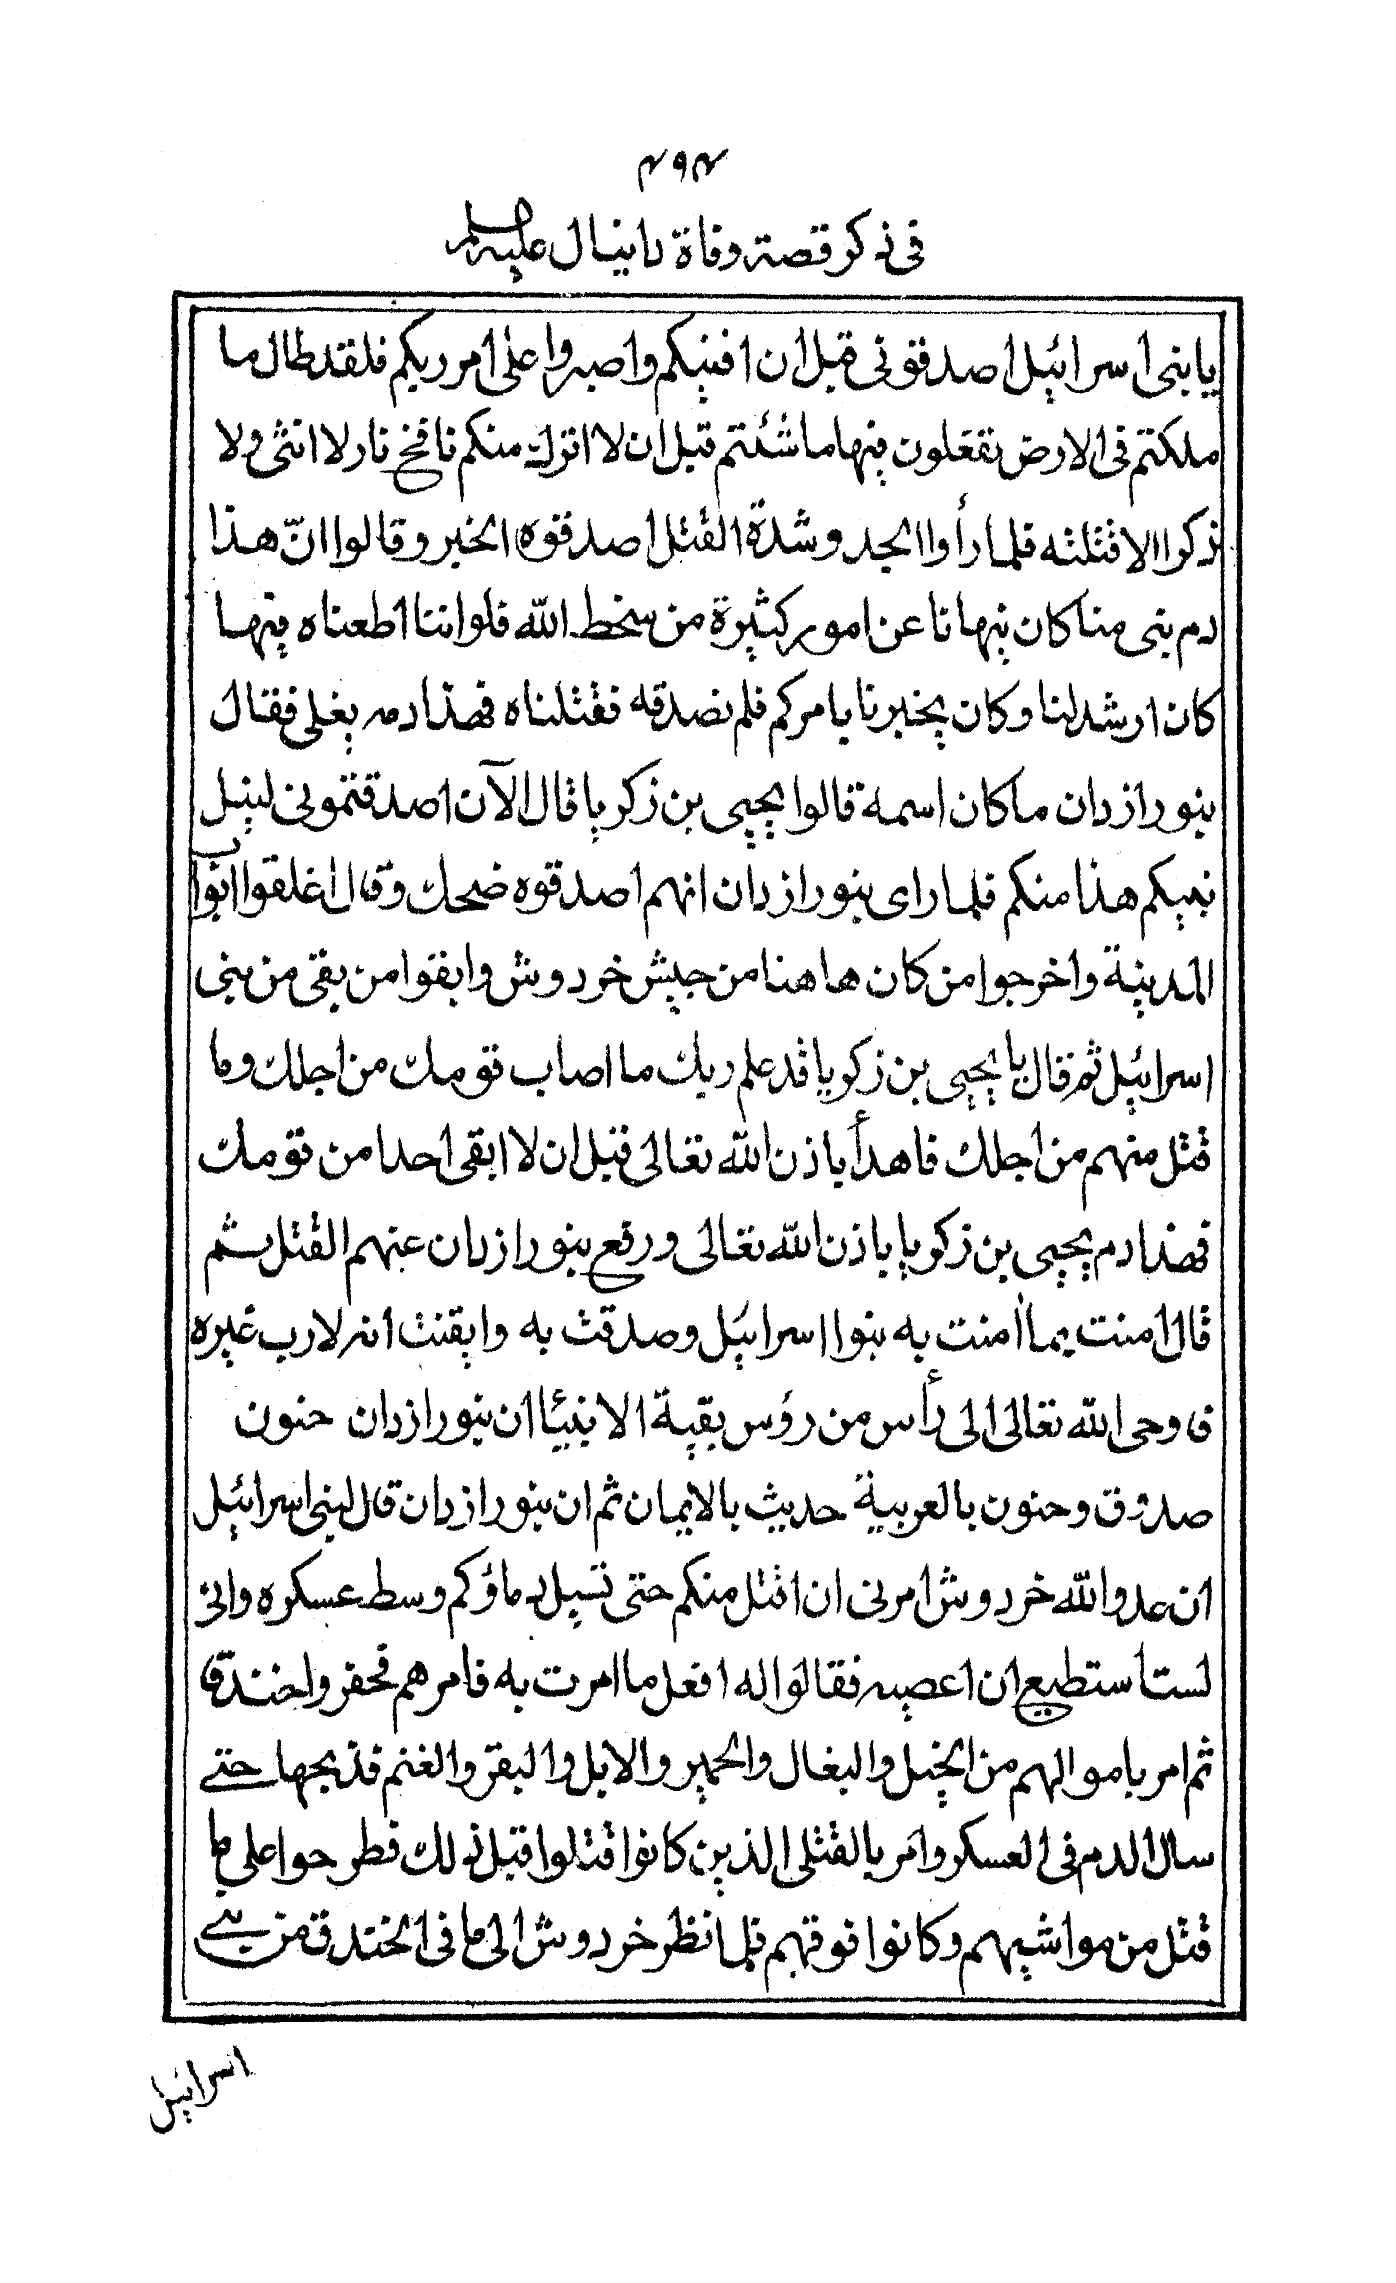 ٤٩٤
فى ذكر قصة وفاة دانيال عليه السلم
يا بنى اسرائيل اصدقونى قبل ان افنيكم واصبروا على امر ربكم فلقد طال ما
ملكتم فى الارض تفعلون فيها ما شئتم قبل ان لا اترك منكم نافخ نار لا انثى ولا
ذكرا الا قتلته فلما رأوا الجد وشدة القتل اصدقوه الخبر وقالوا انّ هذا
دم نبى منا كان ينهانا عن امور كثيرة من سخط الله فلو اننا اطعناه فيها
كان ارشد لنا وكان يخبرنا بامركم فلم نصدقه فقتلناه فهذا دمه يغلى فقال
بنورازدان ما كان اسمه قالوا يحيى بن زكريا قال الآن اصدقتمونى لينيل
نبيكم هذا منكم فلما راى بنورازدان انهم اصدقوه ضحك وقال اغلقوا ابواب
المدينة واخرجوا من كان هاهنا من جيش خردوش وابقوا من بقى من بنى
اسرائيل ثم قال يا يحيى بن زكريا قد علم ربك ما اصاب قومك من اجلك وما
قتل منهم من اجلك فاهدأ باذن الله تعالى قبل ان لا ابقى احدا من قومك
فهذا دم يحيى بن زكريا باذن الله تعالى ورفع بنورازدان عنهم القتل ثم
قال امنت بما امنت به بنوا اسرائيل وصدقت به وايقنت انه لا رب غيره
فاوحى الله تعالى الى رأس من رؤس بقية الانبيا ان بنورازدان حنون
صدوق وحنون بالعربية حديث بالايمان ثم ان بنورازدان قال لبنى اسرائيل
ان عدو الله خردوش امرنى ان اقتل منكم حتى تسيل دماؤكم وسط عسكره وانى
لست استطيع ان اعصيه فقالوا له افعل ما امرت به فامرهم فحفروا خندقا
ثم امر باموالهم من الخيل والبغال والحمير والابل والبقر والغنم فذبحها حتى
سال الدم فى العسكر وامر بالقتلى الذين كانوا قتلوا قبل ذلك فطرحوا على ما
قتل من مواشيهم وكانوا فوقهم فلما نظر خردوش الى ما فى الخندق من بنى
اسرائيل